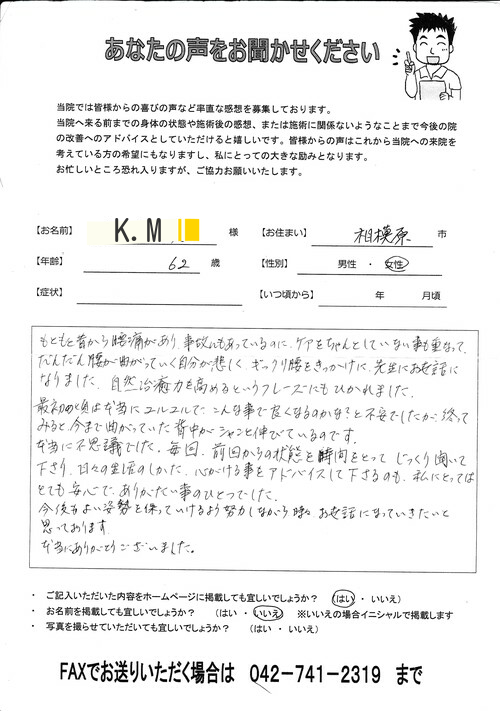 あなたの声をお聞かせください
当院では皆様からの喜びの声など率直な感想を募集しております。
当院へ来る前までの身体の状態や施術後の感想、または施術に関係ないようなことまで今後の院
の改善へのアドバイスとしていただけると嬉しいです。皆様からの声はこれから当院への来院を
考えている方の希望にもなりますし、私にとっての大きな励みとなります。
お忙しいところ恐れ入りますが、ご協力お願いいたします。
【お名前】 K.M 様 【お住まい】 相模原 市
【年齢】 62 歳 【性別】 男性 ・ 女性
【症状】 【いつ頃から】 年 月頃
もともと昔から腰痛があり、事故にもあっているのに、ケアをちゃんとしていない事も重なって、
だんだん腰が曲がっていく自分が悲しく、ぎっくり腰をきっかけに、先生にお世話に
なりました。自然治癒力を高めるというフレーズにもひかれました。
最初の頃は本当にユルユルで、こんな事で良くなるのかな?と不安でしたが、終って
みると、今まで曲がっていた背中がシャンと伸びているのです。
本当に不思議でした。毎回、前回からの状態を時間をとって じっくり聞いて
下さり、日々の生活のしかた、心がける事をアドバイスして下さるのも、私にとっては
とても安心で、ありがたい事のひとつでした。
今後もよい姿勢を保っていけるよう努力しながら時々お世話になっていきたいと
思っております。
本当にありがとうございました。
・ ご記入いただいた内容をホームページに掲載しても宜しいでしょうか? (はい ・ いいえ)
・ お名前を掲載しても宜しいでしょうか? (はい ・ いいえ) ※いいえの場合イニシャルで掲載します
・ 写真を撮らせていただいても宜しいでしょうか? (はい ・ いいえ)
FAXでお送りいただく場合は 042-741-2319 まで